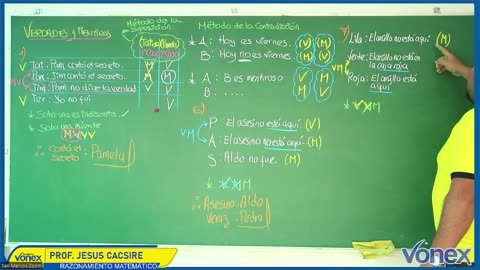 VERDADES y MENTIRAS
Método de la
Suposición
Tat: Pam contó el secreto.
Pam: Jim contó el secreto.
Jim: Pam no dice la verdad
Ter: Yo no fui
VM
M
M
M
V
V
V
↓ Solo una es indiscreta...
↓ Solo una miente
M V V V
∴ Contó el secreto: Pamela
Método de la Contradicción
A: Hoy es viernes.
B: Hoy no es viernes.
V M
M V
A: B es mentiroso
B: .....
V M
M V
6)
VM
P: El asesino está aquí. (V)
A: El asesino no está aquí (M)
S: Aldo no fue. (M)
∴ Asesino: Aldo
Veraz: Pedro
7)
Lila: El anillo no está aquí (M)
Verde: El anillo no está en
la caja roja
Roja: El anillo está
aquí
VM
↓ V V M
Vonex
San Marcos Zoom
PROF. JESUS CACSIRE
RAZONAMIENTO MATEMATICO
vonex